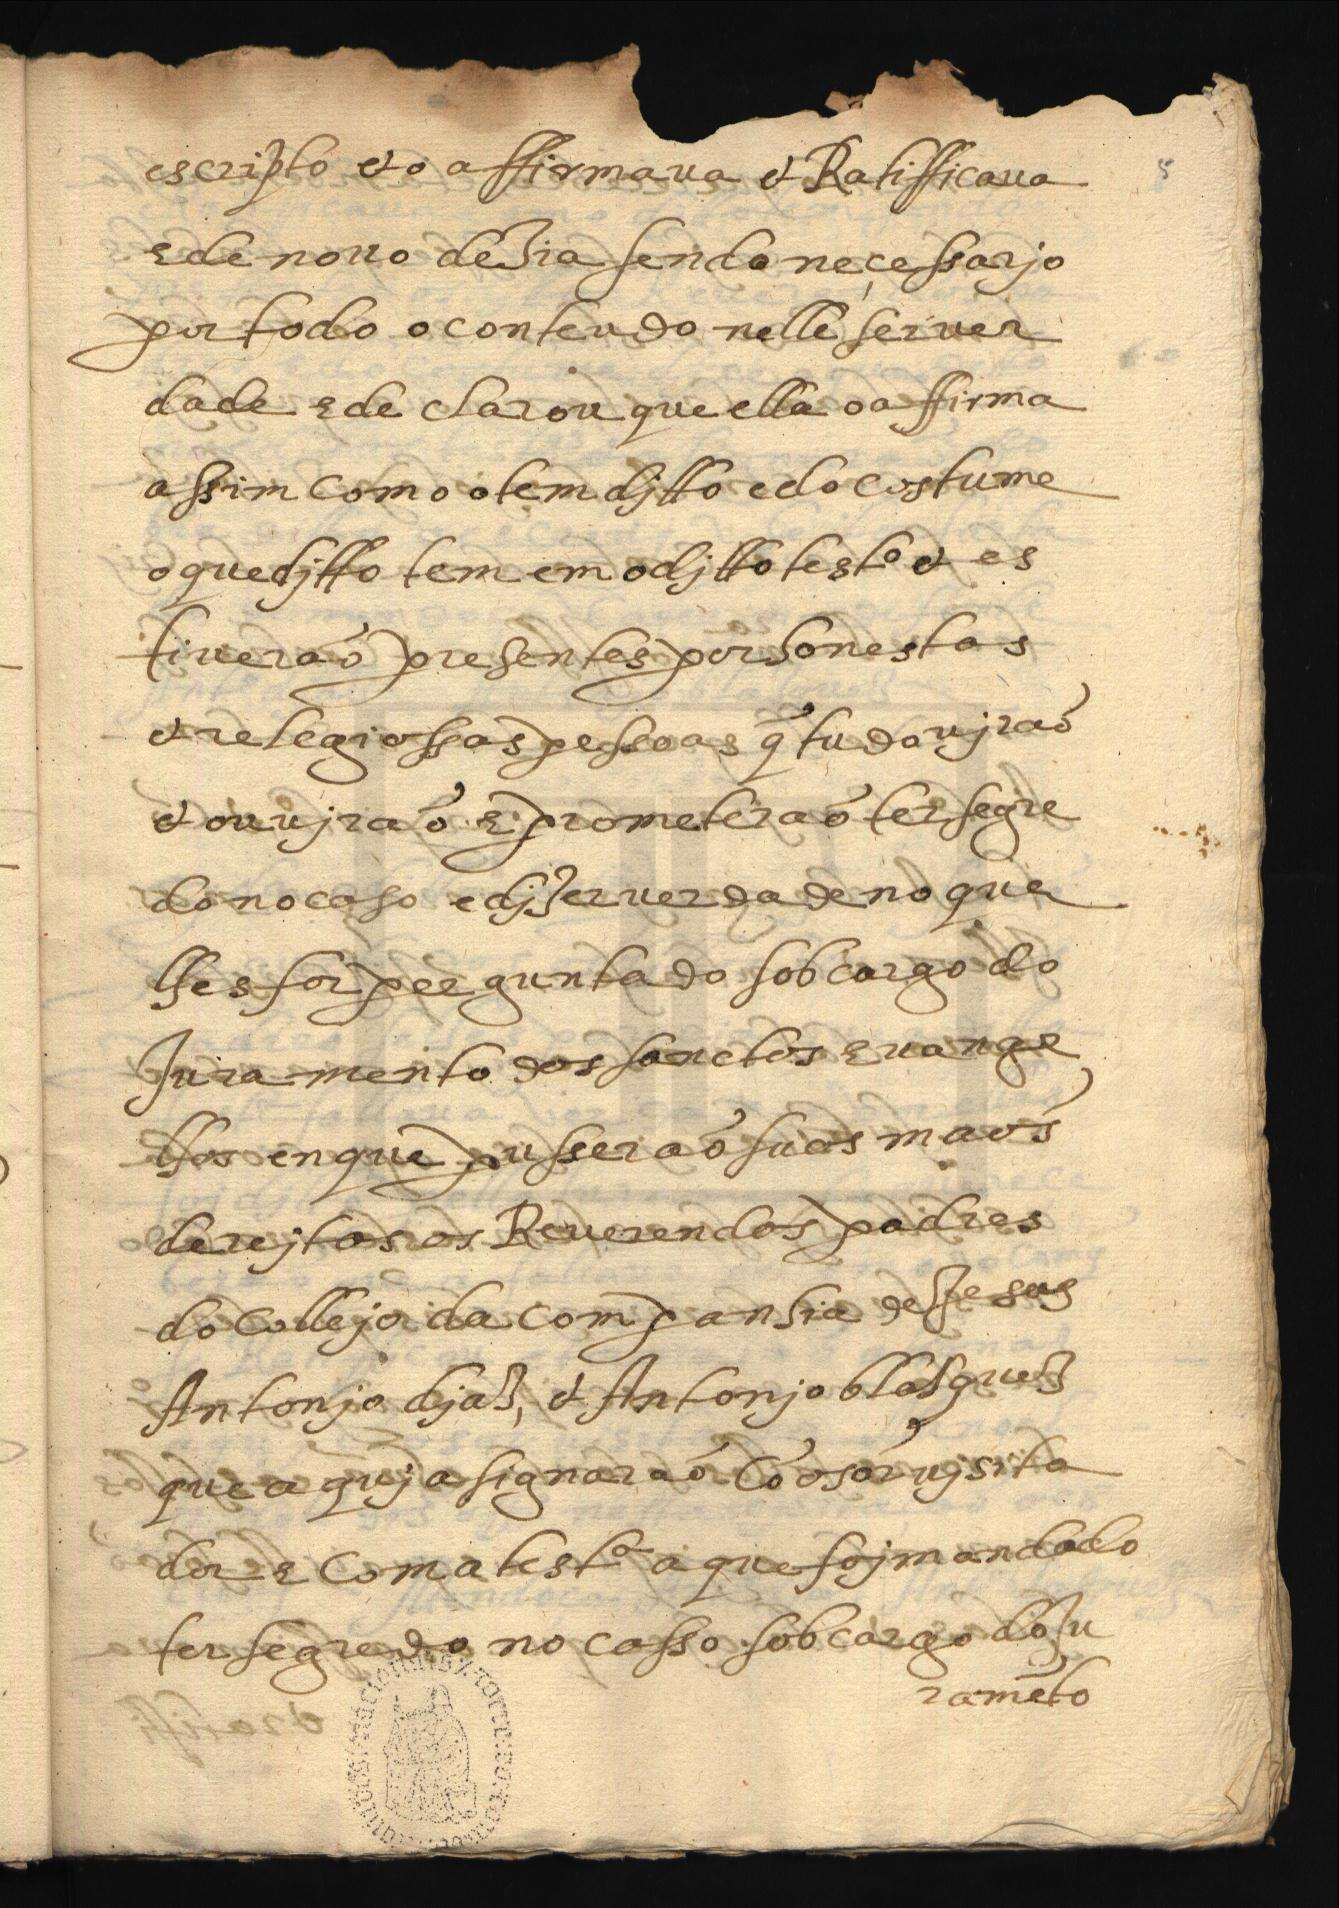 escripto e o affirmaua e Ratifficaua
e de nouo dezia sendo neçessarjo
por todo o conteudo nelle ser uer
dade e declarou que ella o affirma
assim como o tem djtto e do costume
o que djtto tem em o djtto testº e es
tiueraõ presentes por honestas
e relegiossas pessoas q̃ tudo ujraõ
e ouujraõ e prometeraõ ter segre
do no caso e djzer uerdade no que
lhes for perguntado sob cargo do
Juramento dos sanctos euange
lhos en que pusseraõ suas maõs
derejtas os Reuerendos padres
do Collejo da companhia de Jesus
Antonjo djaz, e Antonjo blasquez
que aquj asignaraõ cõ o sõr ujsita
dor e com a testª a que foj mandado
ter segredo no casso sob cargo do Ju
ramẽto